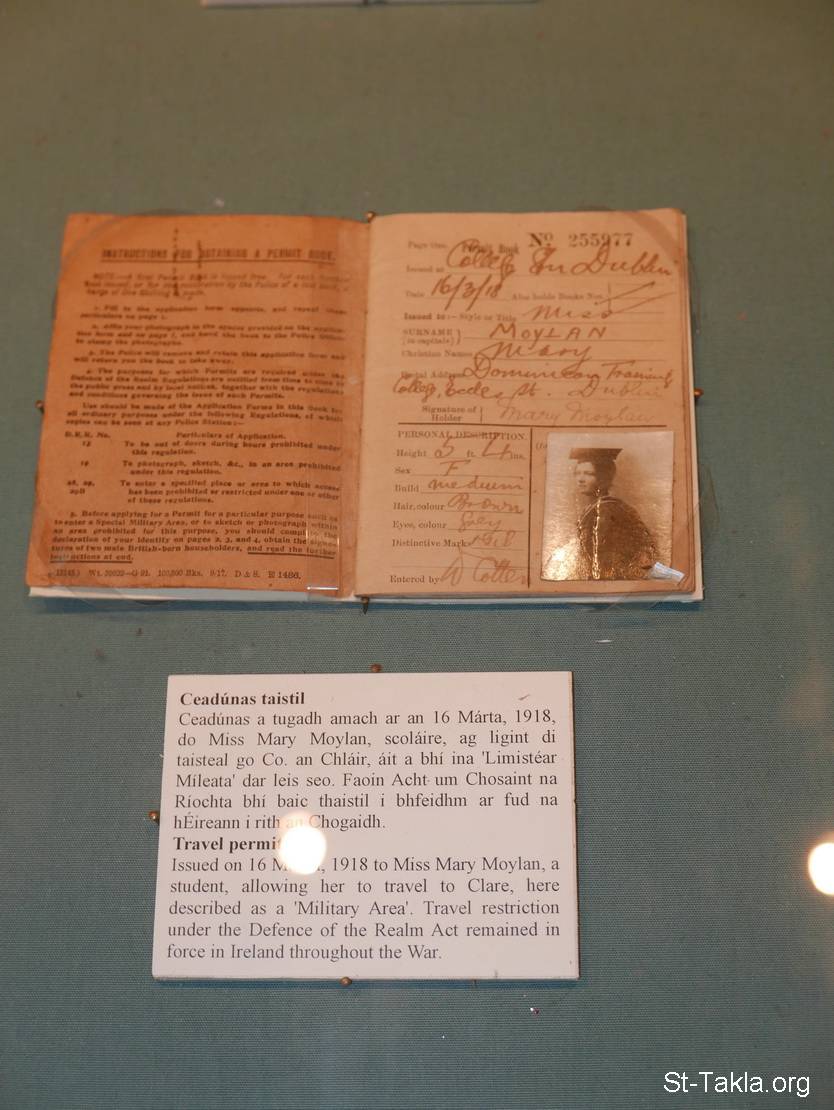 INSTRUCTIONS FOR OBTAINING A PERMIT BOOK.
particulars on page 1.
to stamp the photographs.
3. The Police will remove and retain this application form and
will return you the book to take away.
4. The purposes for which Permits are required under the
Defence of the Realm Regulations are notified from time to time in
the public press and by local notices, together with the regulations
and conditions governing the issue of such Permits.
Use should be made of the Application Forms in this Book for
all ordinary purposes under the following Regulations, of which
copies can be seen at any Police Station:—
D.R.R. No. Particulars of Application.
13 To be out of doors during hours prohibited under
this regulation.
19 To photograph, sketch, &c., in an area prohibited
under this regulation.
To enter a specified place or area to which access
has been prohibited or restricted under one or other
of these regulations.
5. Before applying for a Permit for a particular purpose such as
to enter a Special Military Area, or to sketch or photograph within
an area prohibited for this purpose, you should complete the
declaration of your identity on pages 2, 3, and 4, obtain the signa-
tures of two male British-born householders, and read the further
instructions at end.
100,000 Bks. 9/17. D & S. E 1486.
Page One. Permit Book No 255977
Issued at College St Dublin
Date 16/3/18 Also holds Books Nos.
Issued to:— Style or Title Miss
SURNAME (in capitals) MOYLAN
Christian Names Mary
Postal Address Dominican Training
College, Eccles St. Dublin
Signature of Holder Mary Moylan
PERSONAL DESCRIPTION.
Height 5 ft. 4 ins.
Sex F
Build medium
Hair, colour Brown
Eyes, colour Grey
Distinctive Marks
Entered by
Ceadúnas taistil
Ceadúnas a tugadh amach ar an 16 Márta, 1918,
do Miss Mary Moylan, scoláire, ag ligint di
taisteal go Co. an Chláir, áit a bhí ina 'Limistéar
Míleata' dar leis seo. Faoin Acht um Chosaint na
Ríochta bhí baic thaistil i bhfeidhm ar fud na
hÉireann i rith an Chogaidh.
Travel permit
Issued on 16 March, 1918 to Miss Mary Moylan, a
student, allowing her to travel to Clare, here
described as a 'Military Area'. Travel restriction
under the Defence of the Realm Act remained in
force in Ireland throughout the War.
St-Takla.org